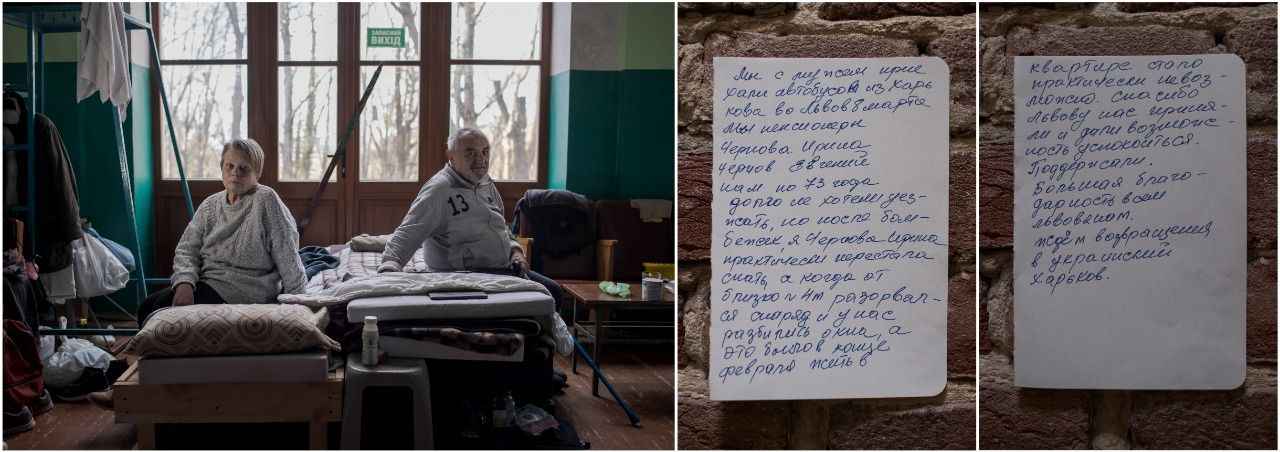 ЗАПАСНИЙ
ВИХІД
13
Мы с мужем прие
хали автобусом из Харь
кова во Львов 8 марта
Мы пенсионеры
Чернова Ирина
Чернов Евгений
нам по 73 года
долго не хотели уез-
жать, но после бом-
бежек я Чернова Ирина
практически перестала
спать, а когда от
близко разорвал-
ся снаряд и у нас
разбились окна, а
это было в конце
февраля жить в
квартире стало
практически невоз-
можно. Спасибо
Львову нас приня-
ли и дали возмож-
ность успокоиться.
Поддержали.
Большая благо-
дарность всем
львовянам.
ждём возвращения
в украинский
Харьков.